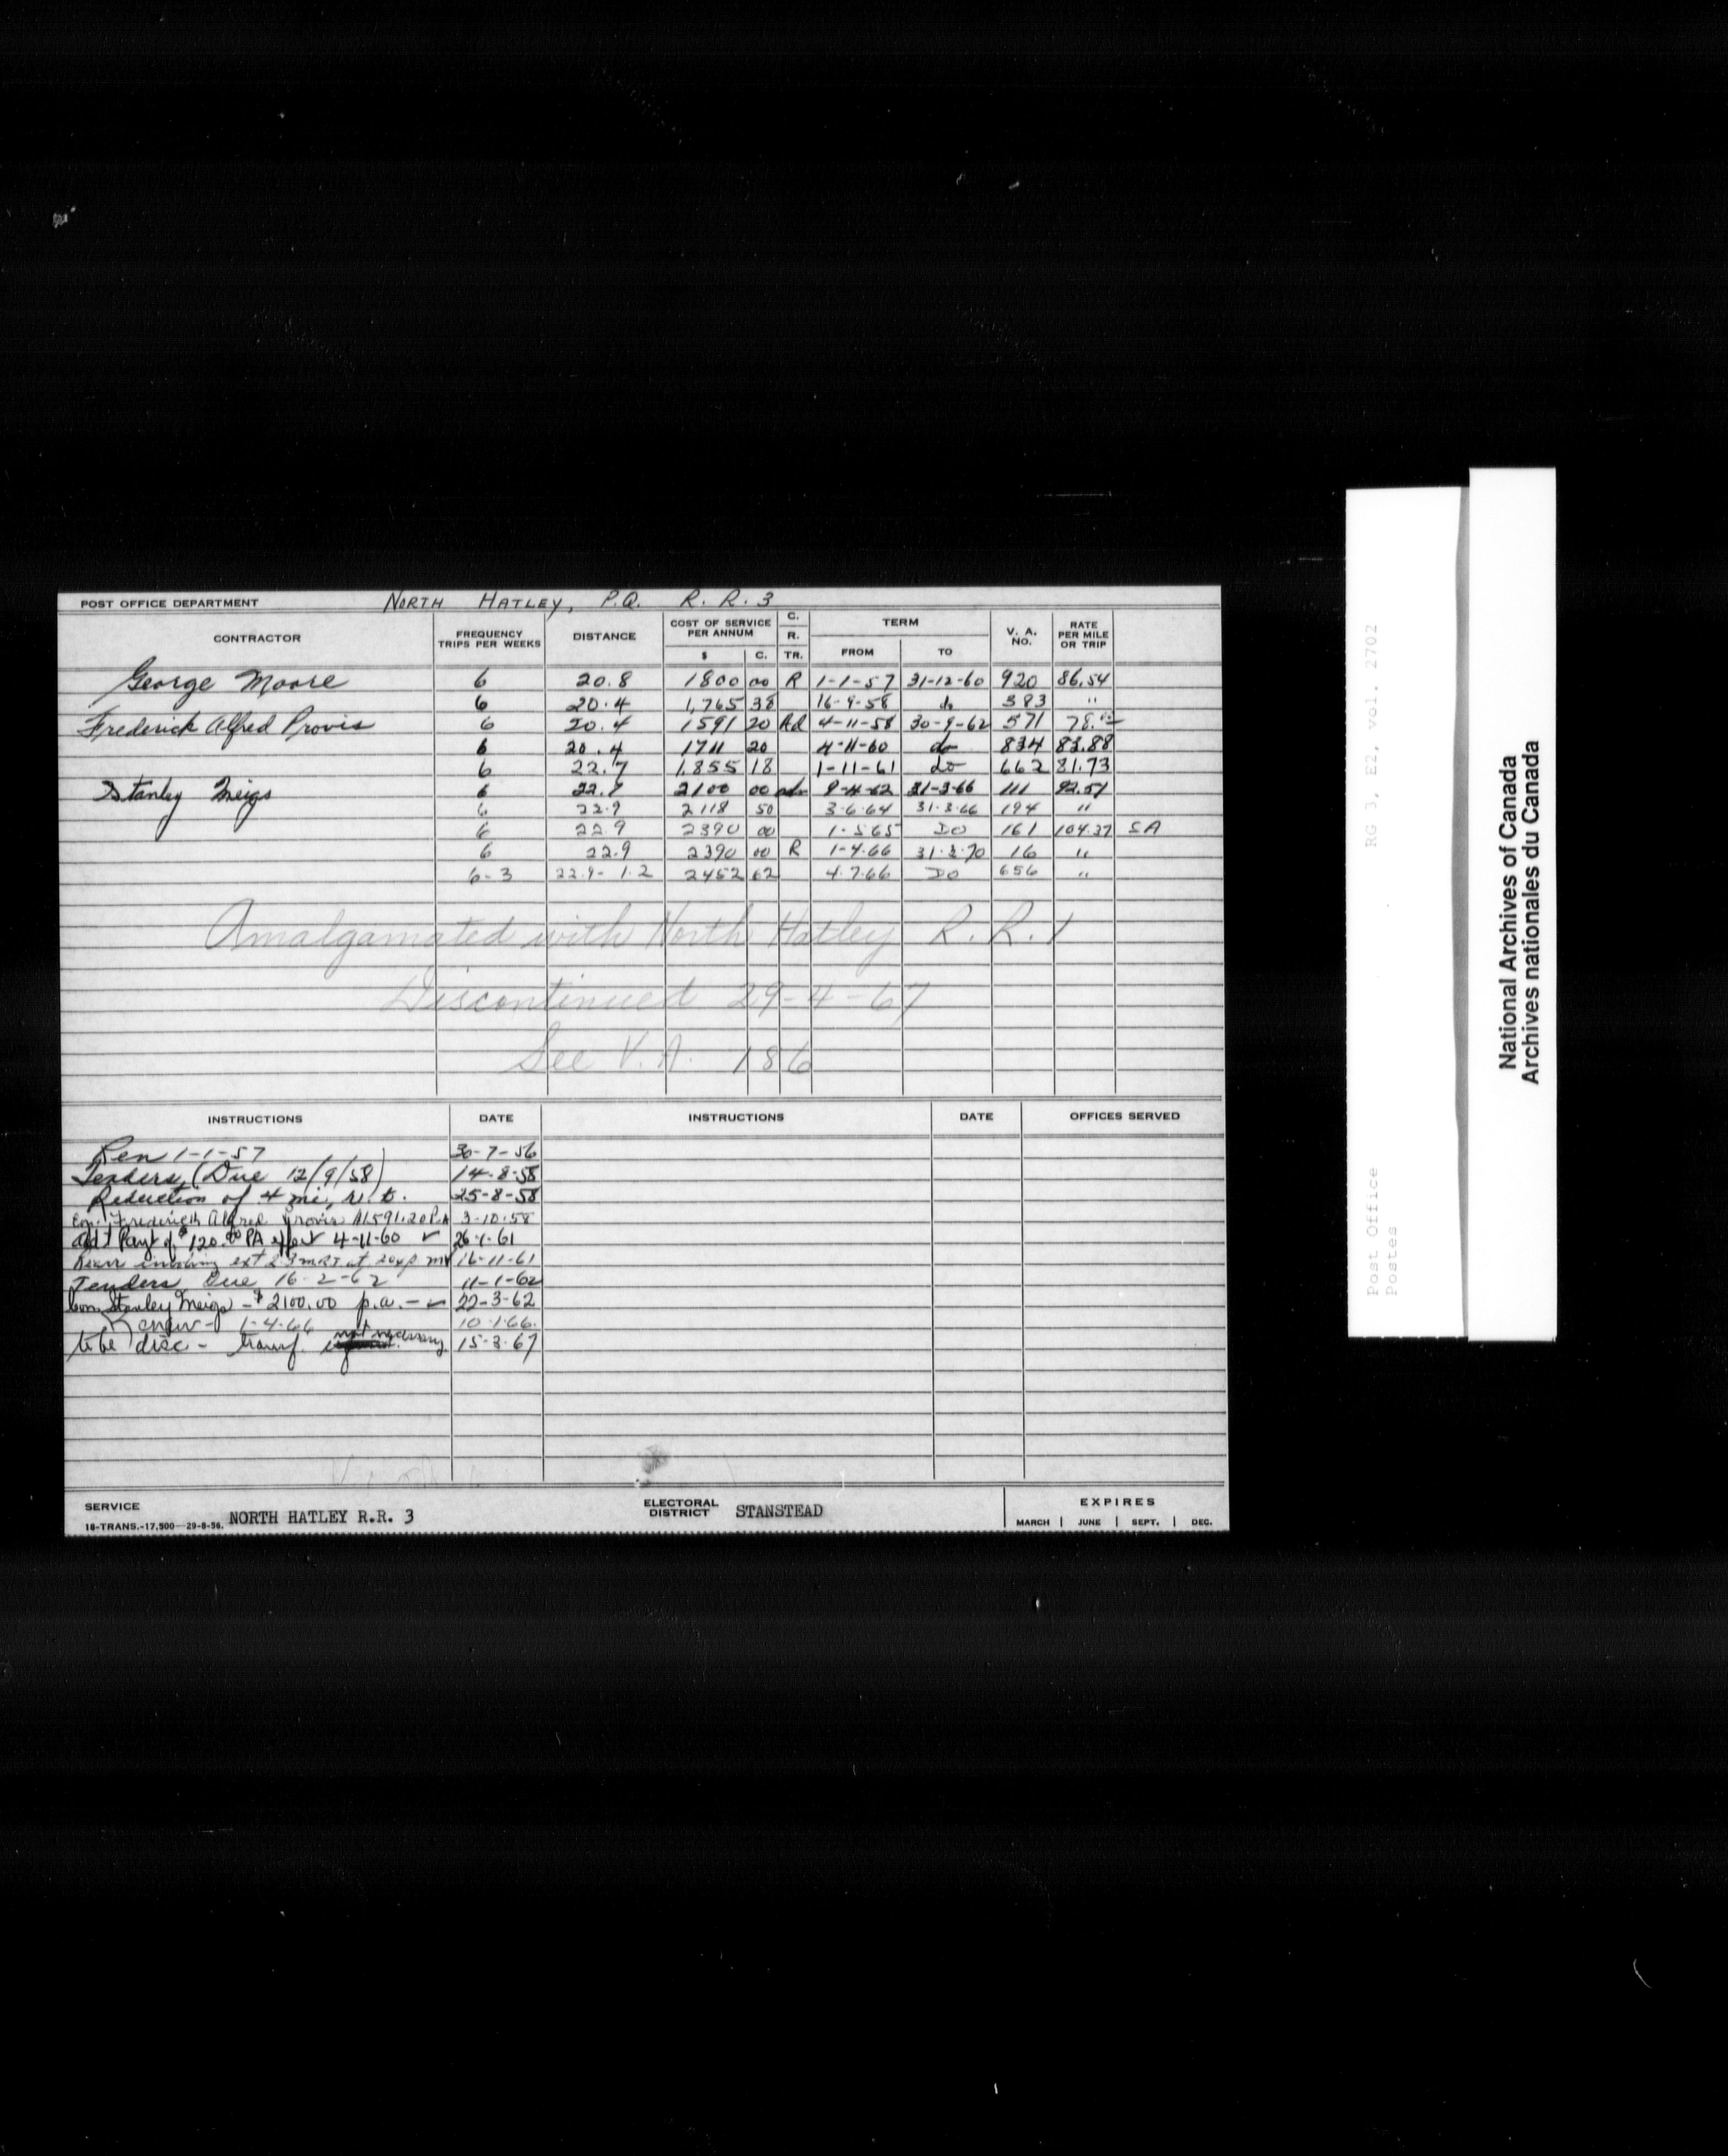 POST OFFICE DEPARTMENT NORTH HATLEY, P.Q. R.R. 3
CONTRACTOR FREQUENCY TRIPS PER WEEKS DISTANCE COST OF SERVICE PER ANNUM $ C. C. R. TR. TERM FROM TO V. A. NO. RATE PER MILE OR TRIP
George Moore 6 20.8 1800 00 R 1-1-57 31-12-60 920 86.54
6 20.4 1,765 38 16-9-58 do 383 "
Frederick Alfred Provis 6 20.4 1591 20 Ad 4-11-58 30-9-62 571 78.00
6 20.4 1711 20 4-11-60 do 834 83.88
6 22.7 1,855 18 1-11-61 do 662 81.73
Stanley Meigs 6 22.7 2100 00 9-4-62 31-3-66 111 92.51
6 22.9 2118 50 3-6-64 31-3-66 194 "
6 22.9 2390 00 1-5-65 DO 161 104.37 SA
6 22.9 2390 00 R 1-4-66 31-3-70 16 "
6-3 22.9-1.2 2452 62 4-7-66 DO 656 "
Amalgamated with North Hatley R.R.1
Discontinued 29-4-67
See V.A. 186
INSTRUCTIONS DATE INSTRUCTIONS DATE OFFICES SERVED
Ren 1-1-57 30-7-56
Tenders (Due 12/9/58) 14-8-58
Reduction of .4 mi. r.t. 25-8-58
Con. Frederick Alfred Provis $1591.20 P.A 3-10-58
Add'l Payt of $120.00 PA effect 4-11-60 26-1-61
ext 2.3 m RT at 16-11-61
Tenders Due 16-2-62 11-1-62
Con Stanley Meigs - $2100.00 p.a. - 22-3-62
Renew - 1-4-66 10-1-66.
to be disc - transf. not necessary 15-3-67
SERVICE NORTH HATLEY R.R. 3 ELECTORAL DISTRICT STANSTEAD EXPIRES
18-TRANS.-17,500-29-8-56. MARCH | JUNE | SEPT. | DEC.
RG 3, E2, vol. 2702
Post Office
Postes
National Archives of Canada
Archives nationales du Canada